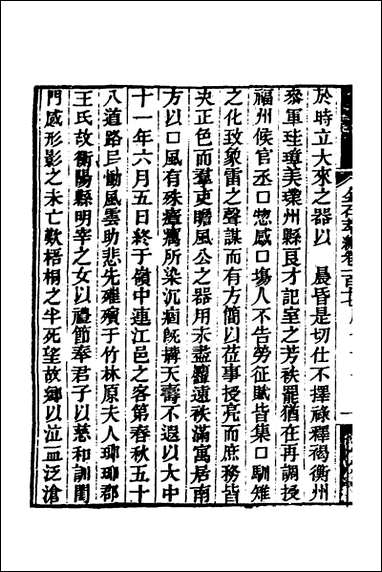 於時立大來之器以　晨昏是切仕不擇祿釋褐衡州
叅軍珪璋美璞州縣良才記室之芳秩罷猶在再調授
福州候官丞口惣感口塲人不告勞征賦皆集口馴雉
之化致象雷之聲謀而有方簡以莅事授亮而庶務皆
夬正色而羣吏瞻風公之器用未盡遐遠秩滿寓居南
方以口風有殊瘴癘所染沉痼旣擠天壽不遐以大中
十一年六月五日終于嶺中連江邑之客第春秋五十
八道路㠯慟風雲助悲先殯于竹林原夫人瑯瑘郡
王氏故衡陽縣明宰之女以禮節奉君子以慈和訓閨
門感形影之未亡歎梧桐之半死望故鄉以泣血泛滄
金石萃編卷一百十七